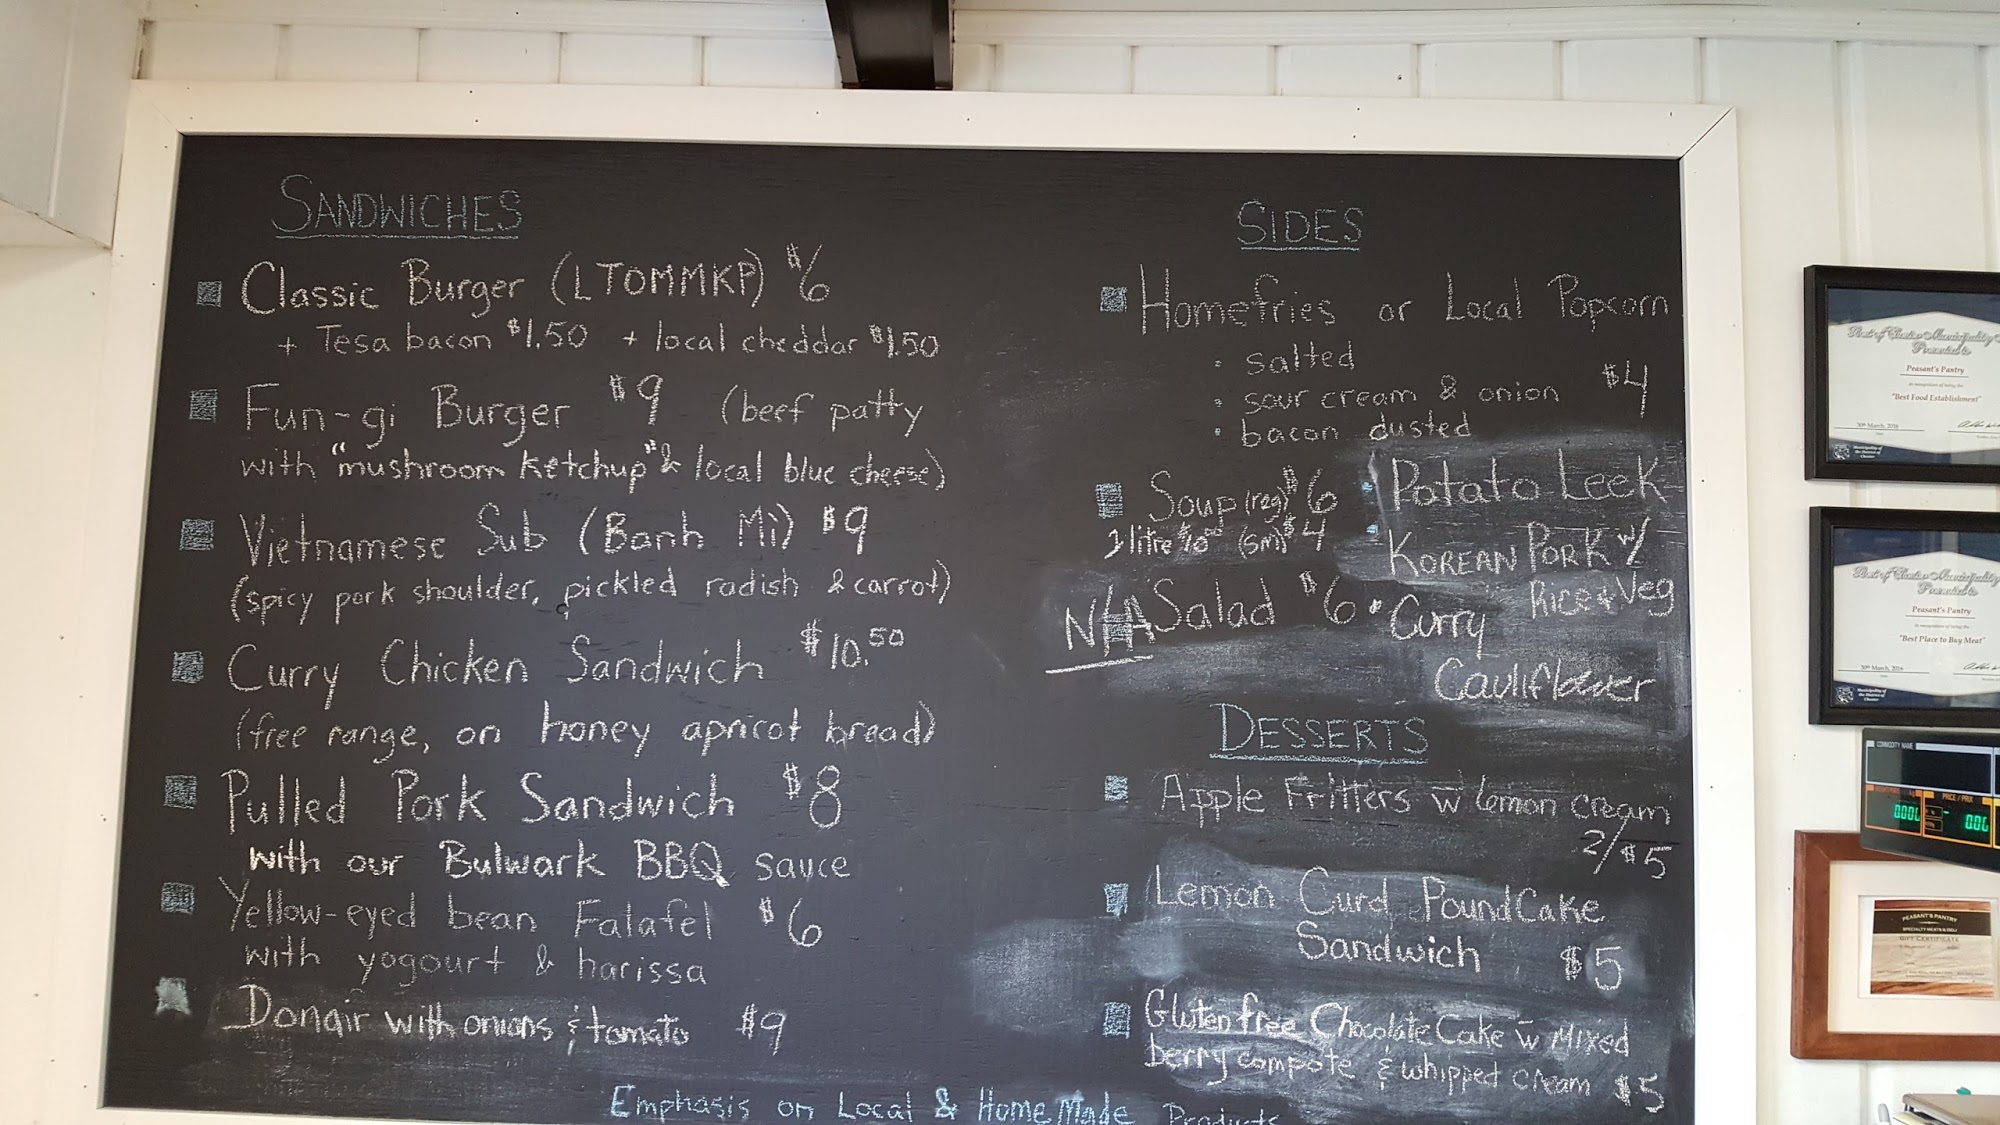 SANDWICHES
Classic Burger (LTOMMKP) $6
+ Tesa bacon $1.50 + local cheddar $1.50
Fun-gi Burger $9 (beef patty
with "mushroom ketchup" & local blue cheese)
Vietnamese Sub (Banh Mi) $9
(spicy pork shoulder, pickled radish & carrot)
Curry Chicken Sandwich $10.50
(free range, on honey apricot bread)
Pulled Pork Sandwich $8
with our Bulwark BBQ sauce
Yellow-eyed bean Falafel $6
with yogourt & harissa
Donair with onions & tomato $9
SIDES
Homefries or Local Popcorn
• salted
• sour cream & onion $4
• bacon dusted
Soup (reg) $6
1 litre $10.00 (sm) $4
• Potato Leek
• KOREAN PORK w/
Rice & Veg
N/A Salad $6
• Curry
Cauliflower
DESSERTS
Apple Fritters w lemon cream
2/$5
Lemon Curd Pound Cake
Sandwich $5
Gluten free Chocolate Cake w Mixed
berry compote & whipped cream $5
Emphasis on Local & Home Made Products
Peasant's Pantry
"Best Food Establishment"
30th March, 2016
Peasant's Pantry
"Best Place to Buy Meat"
30th March, 2016
COMMODITY NAME
PRICE/PRIX
PEASANT'S PANTRY
SPECIALTY MEATS & DELI
GIFT CERTIFICATE